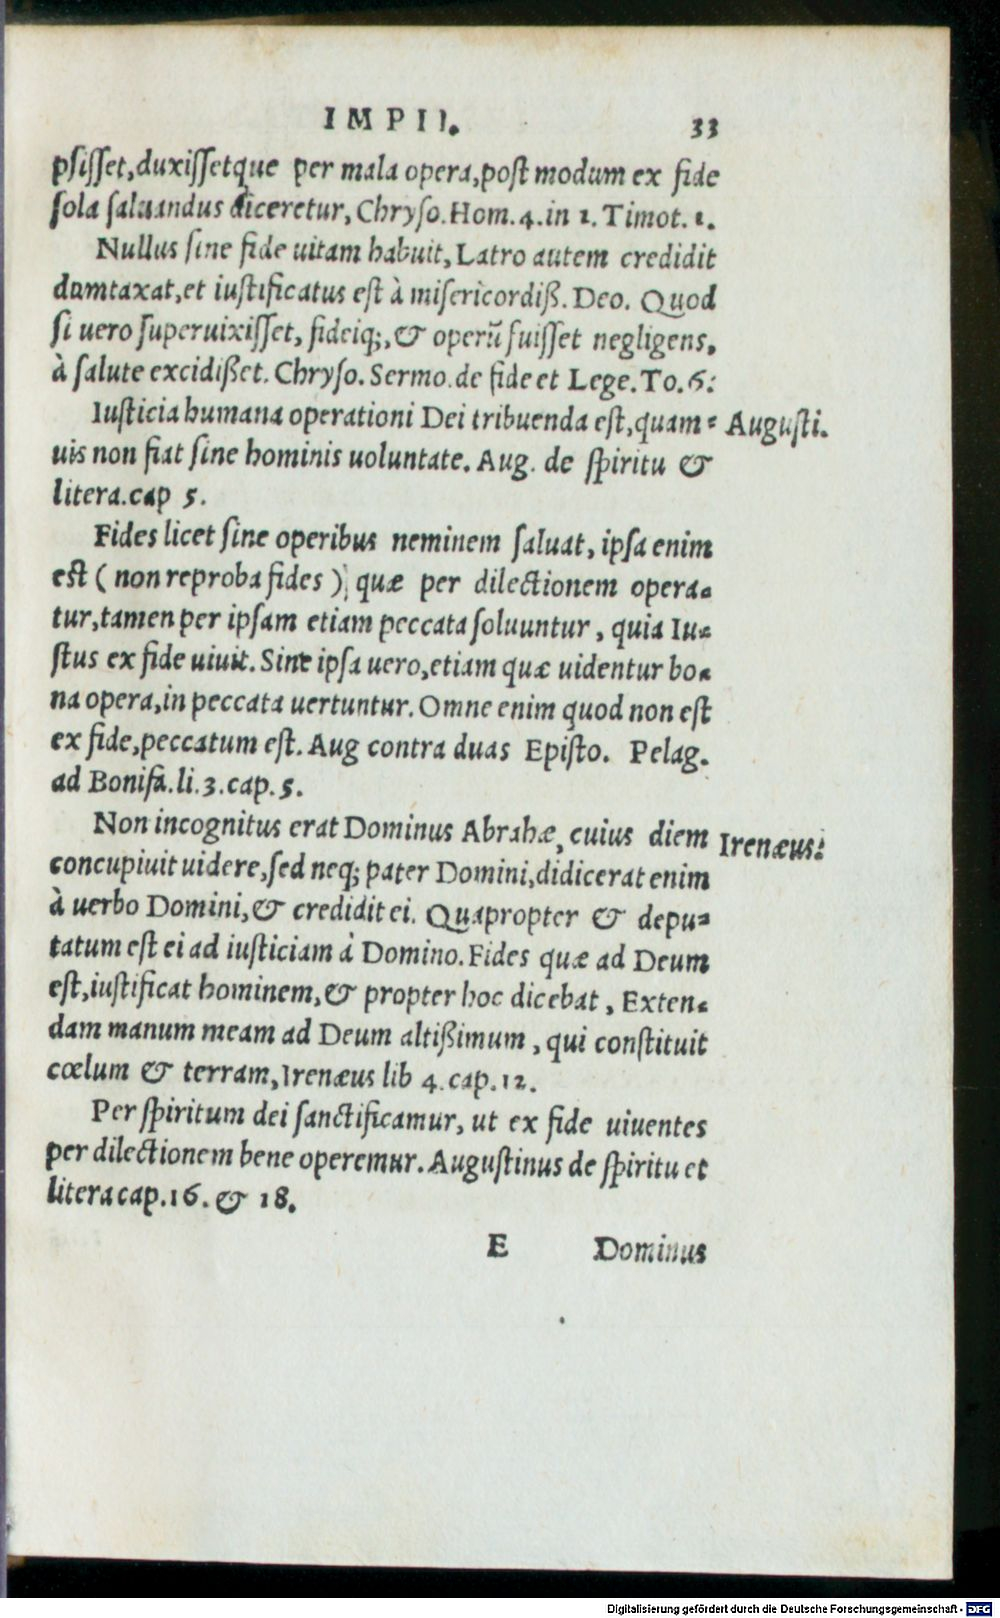 IMPII. 33
psisset, duxissetque per mala opera, post modum ex fide
sola saluandus diceretur, Chryso. Hom. 4. in 1. Timot. 1.
Nullus sine fide uitam habuit, Latro autem credidit
dumtaxat, et iustificatus est à misericordiß. Deo. Quod
si uero superuixisset, fideiq;, & operũ fuisset negligens,
à salute excidißet. Chryso. Sermo. de fide et Lege. To. 6:
Iusticia humana operationi Dei tribuenda est, quam= Augusti.
uis non fiat sine hominis uoluntate. Aug. de spiritu &
litera. cap 5.
Fides licet sine operibus neminem saluat, ipsa enim
est ( non reproba fides ) quæ per dilectionem opera=
tur, tamen per ipsam etiam peccata soluuntur, quia Iu=
stus ex fide uiuit. Sine ipsa uero, etiam quæ uidentur bo=
na opera, in peccata uertuntur. Omne enim quod non est
ex fide, peccatum est. Aug contra duas Episto. Pelag.
ad Bonifa. li. 3. cap. 5.
Non incognitus erat Dominus Abrahæ, cuius diem Irenæus:
concupiuit uidere, sed neq; pater Domini, didicerat enim
à uerbo Domini, & credidit ei. Quapropter & depu=
tatum est ei ad iusticiam à Domino. Fides quæ ad Deum
est, iustificat hominem, & propter hoc dicebat, Exten=
dam manum meam ad Deum altißimum, qui constituit
cœlum & terram, Irenæus lib 4. cap. 12.
Per spiritum dei sanctificamur, ut ex fide uiuentes
per dilectionem bene operemur. Augustinus de spiritu et
litera cap. 16. & 18.
E Dominus
Digitalisierung gefördert durch die Deutsche Forschungsgemeinschaft - DFG